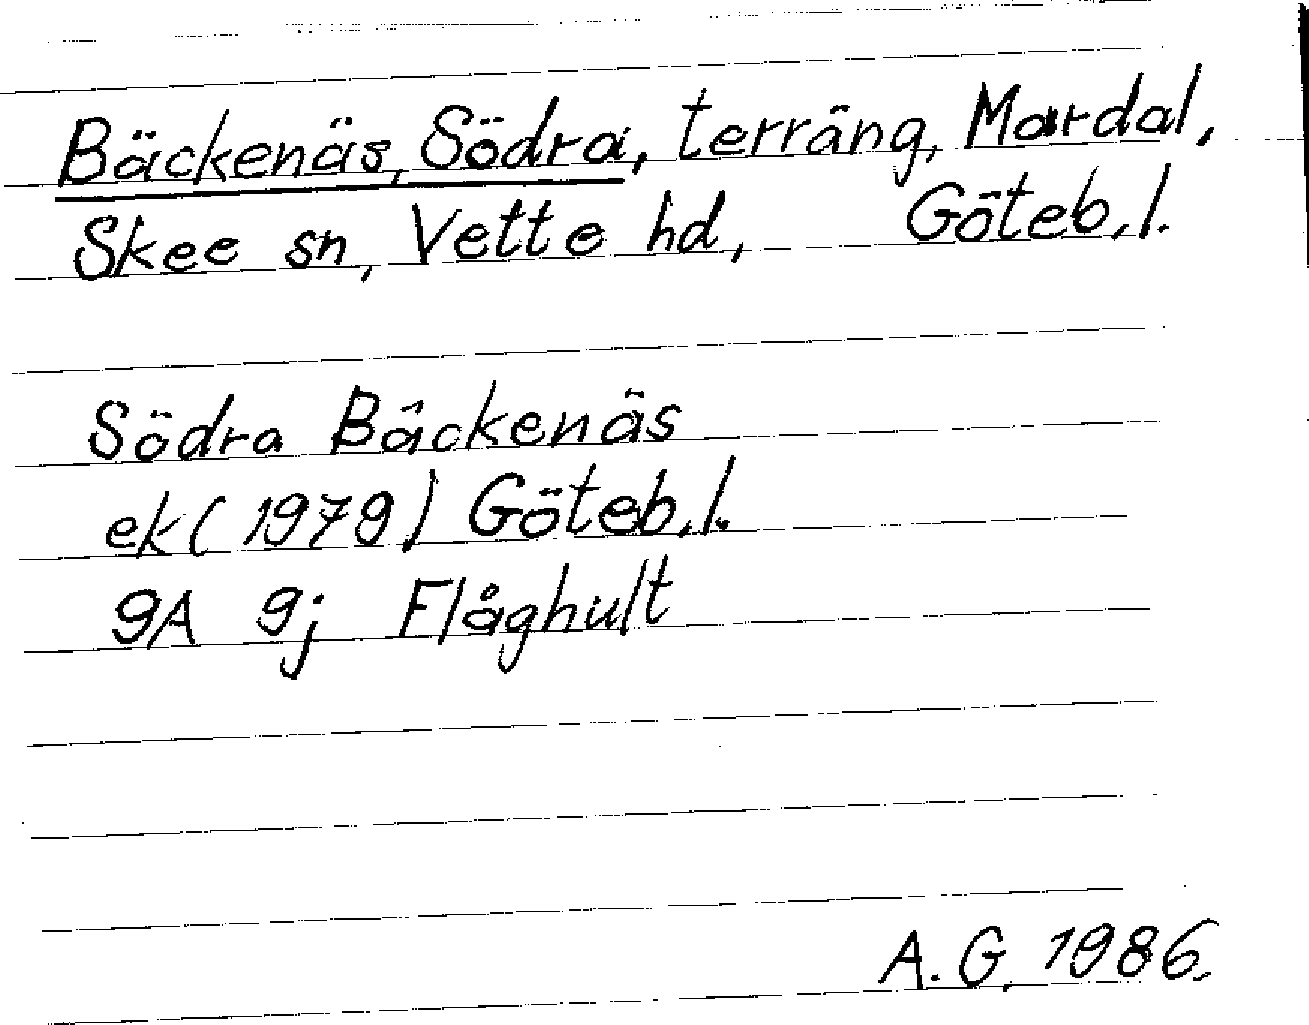 Bäckenäs, Södra, terräng, Mardal,
Skee sn, Vette hd, Göteb.l.
Södra Bäckenäs
ek (1979) Göteb.l.
9A 9j Flåghult
A.G. 1986.